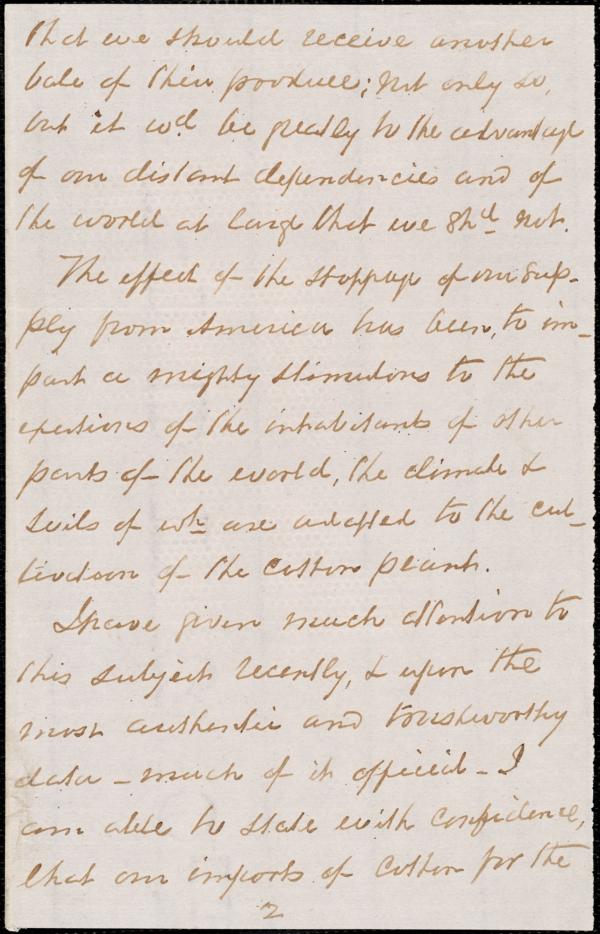 that we should receive another
bale of their produce; not only so,
but it wd. be greatly to the advantage
of our distant dependencies and of
the world at large that we shd. not.
The effect of the stoppage of our sup-
ply from America has been, to im-
part a mighty stimulous to the
exertions of the inhabitants of other
parts of the world, the climate &
soils of wh. are adapted to the cul-
tivation of the cotton plant.
I have given much attention to
this subject recently, & upon the
most authentic and trustworthy
data - much of it official - I
am able to state with confidence,
that our imports of cotton for the
2